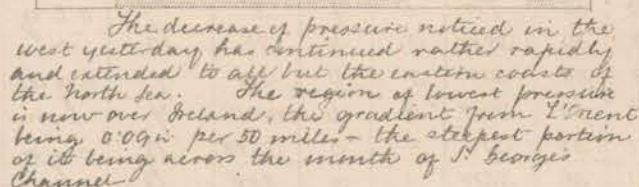 The decrease of pressure noticed in the
west yesterday has continued rather rapidly
and extended to all but the eastern coasts of
the North Sea. The region of lowest pressure
is now over Ireland, the gradient from L'Orient
being 0.09 in per 50 miles - the steepest portion
of it being across the mouth of St. George's
Channel